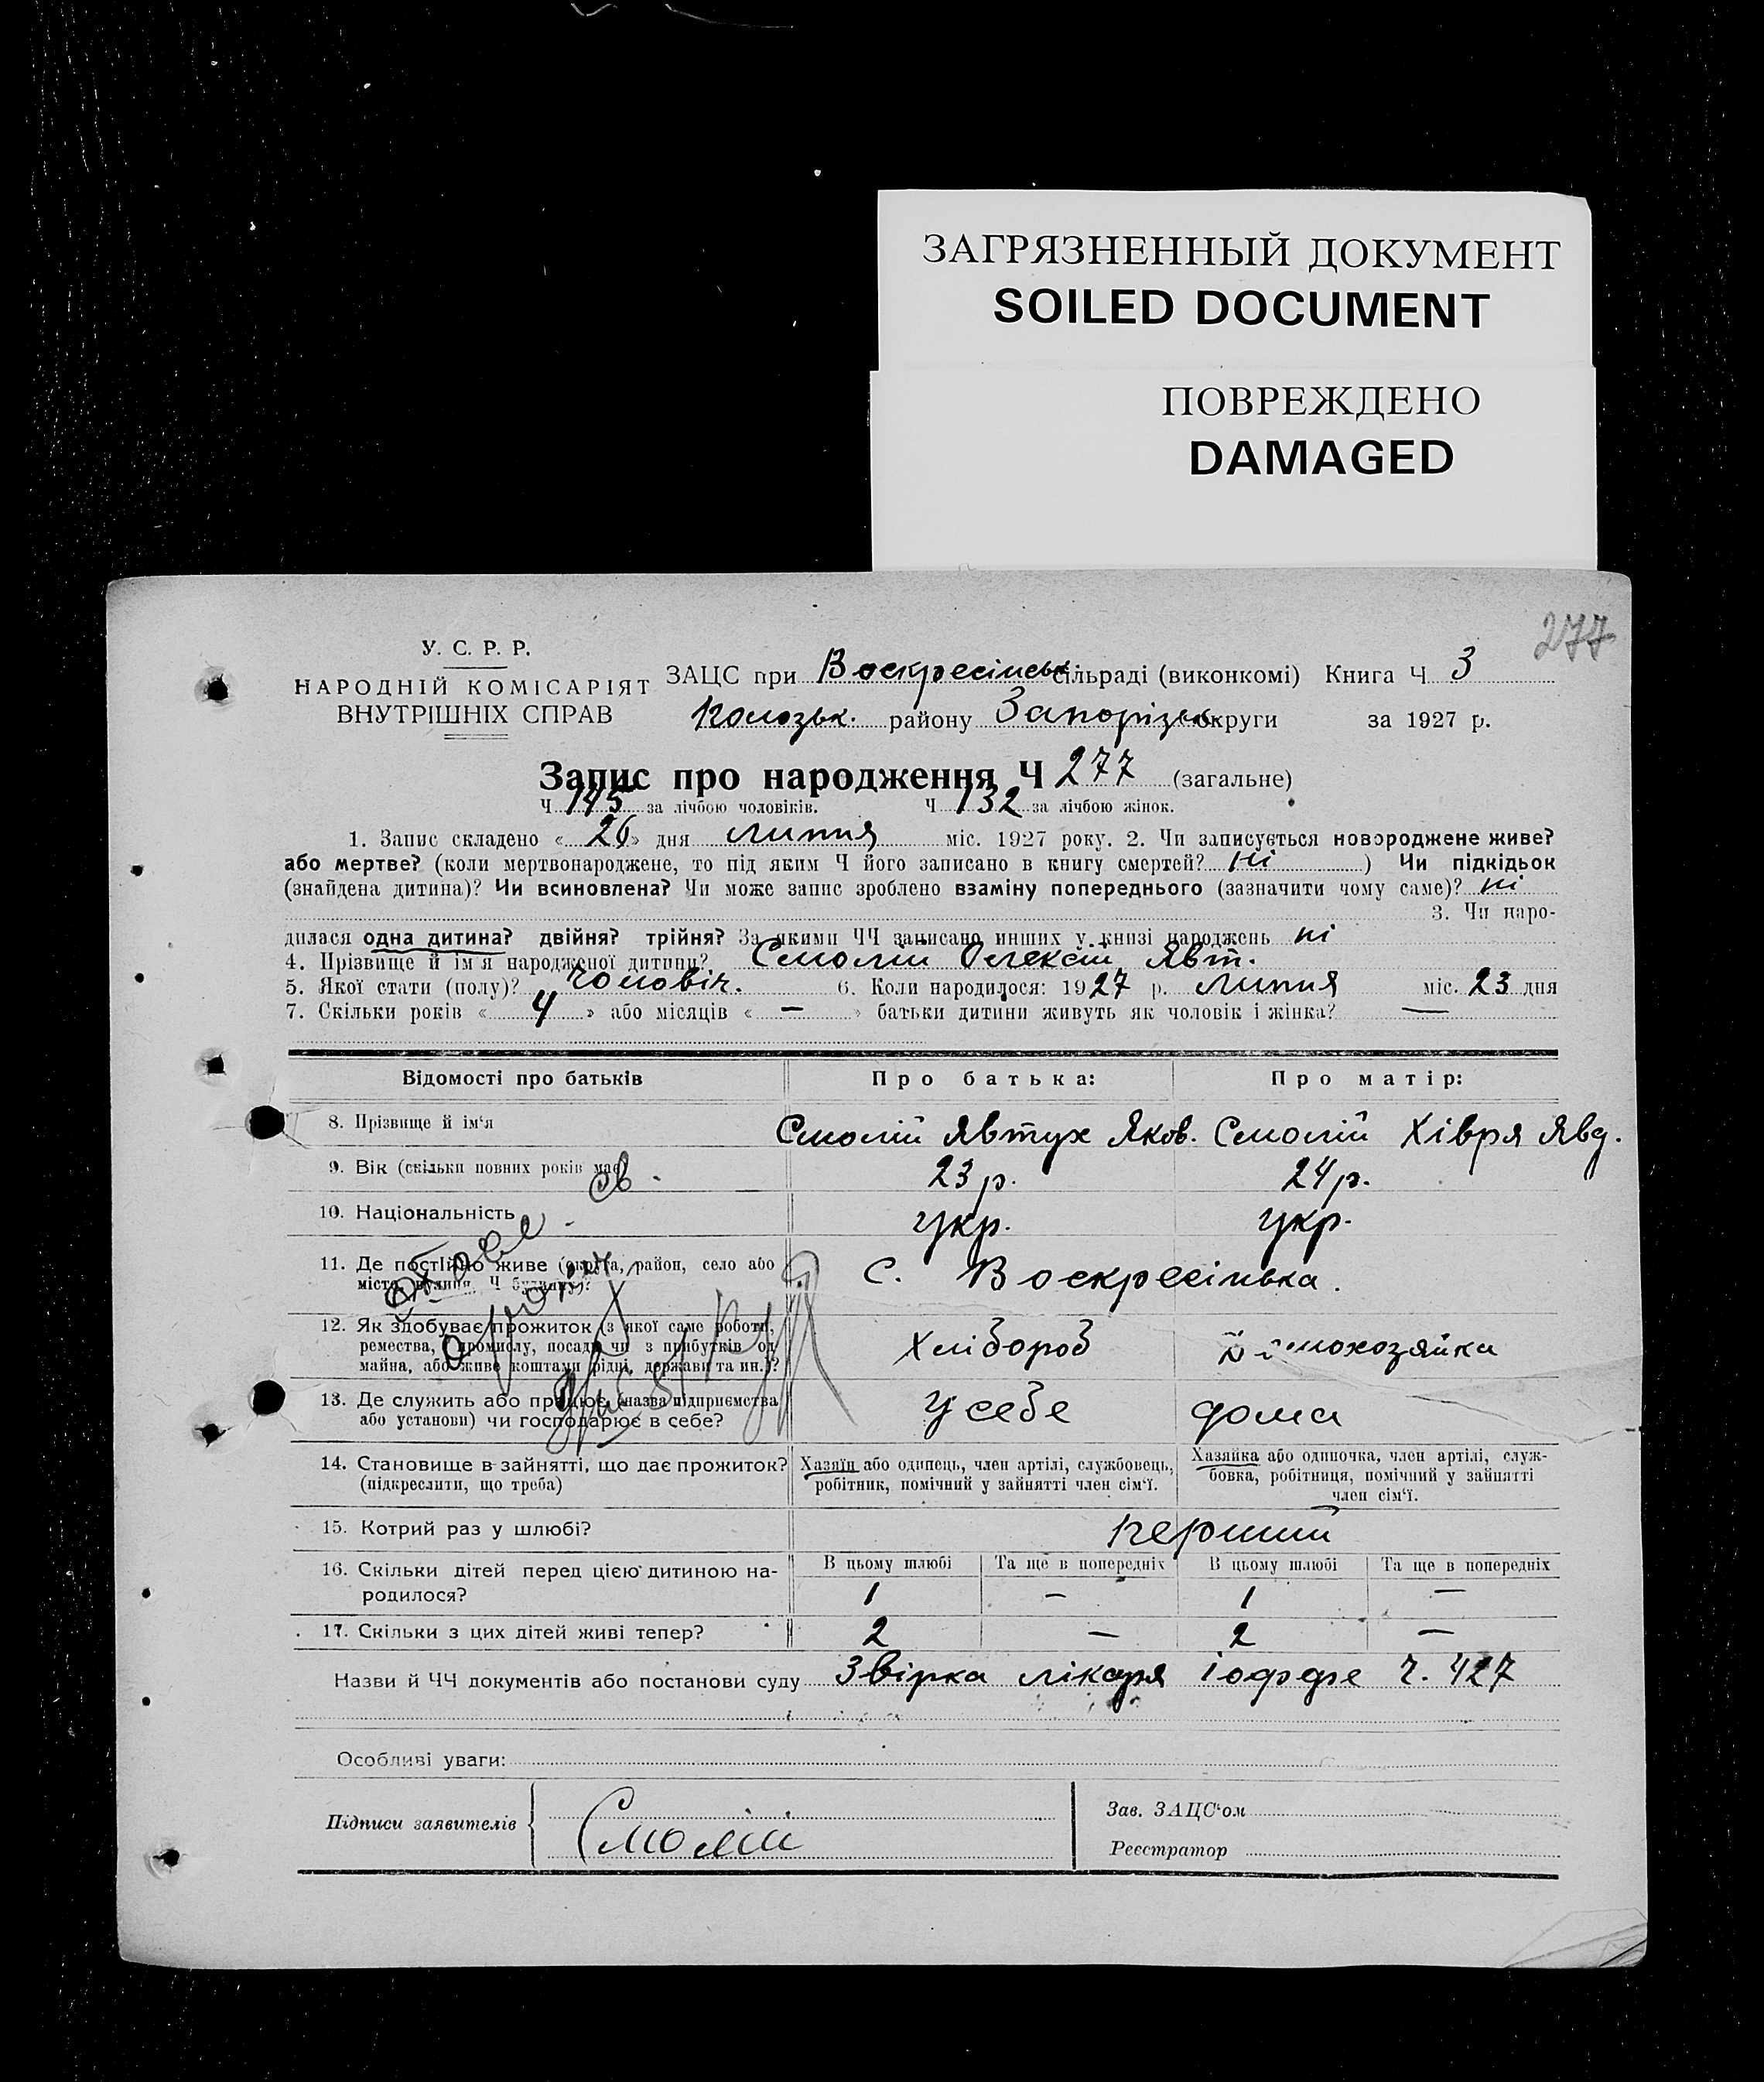 ЗАГРЯЗНЕННЫЙ ДОКУМЕНТ
SOILED DOCUMENT
ПОВРЕЖДЕНО
DAMAGED
277
У. С. Р. Р.
НАРОДНІЙ КОМІСАРІЯТ
ВНУТРІШНІХ СПРАВ
ЗАЦС при Воскресінськ сільраді (виконкомі) Книга Ч 3
району Запорізьк округи за 1927 р.
Запис про народження Ч 277 (загальне)
Ч 145 за лічбою чоловіків. Ч 132 за лічбою жінок.
1. Запис складено « 26 » дня липня міс. 1927 року. 2. Чи записується новороджене живе?
або мертве? (коли мертвонароджене, то під яким Ч його записано в книгу смертей? ні ) Чи підкідьок
(знайдена дитина)? Чи всиновлена? Чи може запис зроблено взаміну попереднього (зазначити чому саме)? ні
3. Чи наро-
дилася одна дитина? двійня? трійня? За якими ЧЧ записано инших у книзі народжень ні
4. Прізвище й ім'я народженої дитини? Смолій Олексій Явт.
5. Якої стати (полу)? чоловіч. 6. Коли народилося: 1927 р. липня міс. 23 дня
7. Скільки років « 4 » або місяців « — » батьки дитини живуть як чоловік і жінка? —
Відомості про батьків Про батька: Про матір:
8. Прізвище й ім'я Смолій Явтух Яков. Смолій Хівря Явд.
9. Вік (скільки повних років має) 23 р. 24 р.
10. Національність укр. укр.
11. Де постійно живе (округа, район, село або
місто, вулиця, Ч будинку)? с. Воскресінвка.
12. Як здобуває прожиток (з якої саме роботи,
ремества, промислу, посади чи з прибутків од
майна, або живе коштами рідні, держави та ин.)? Хлібороб Домохозяйка
13. Де служить або працює (назва підприємства
або установи) чи господарює в себе? У себе дома
14. Становище в зайнятті, що дає прожиток?
(підкреслити, що треба)
Хазяїн або одинець, член артілі, службовець,
робітник, помічний у зайнятті член сім'ї.
Хазяйка або одиночка, член артілі, служ-
бовка, робітниця, помічний у зайнятті
член сім'ї.
15. Котрий раз у шлюбі? перший
16. Скільки дітей перед цією дитиною на-
родилося?
В цьому шлюбі Та ще в попередніх В цьому шлюбі Та ще в попередніх
1 — 1 —
17. Скільки з цих дітей живі тепер? 2 — 2 —
Назви й ЧЧ документів або постанови суду Звірка лікаря Іоффе ч. 427
Особливі уваги:
Підписи заявителів
Смолій
Зав. ЗАЦС'ом
Реєстратор